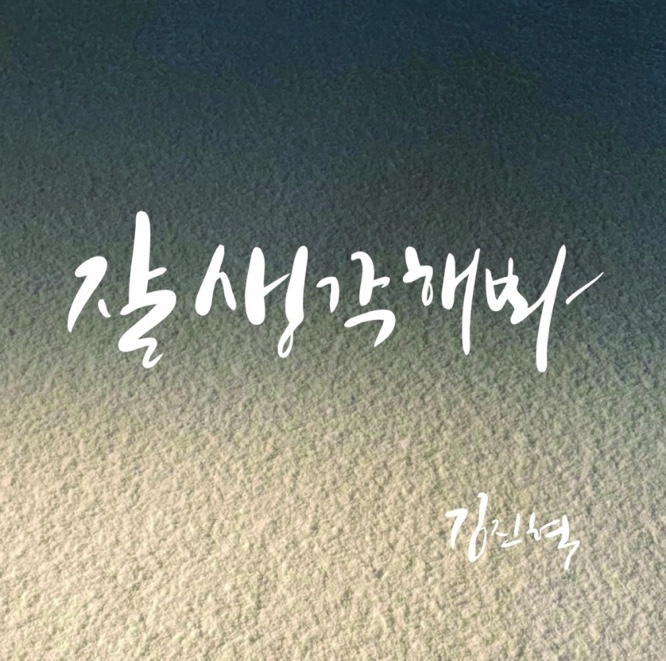 잘 생각해봐
김진혁